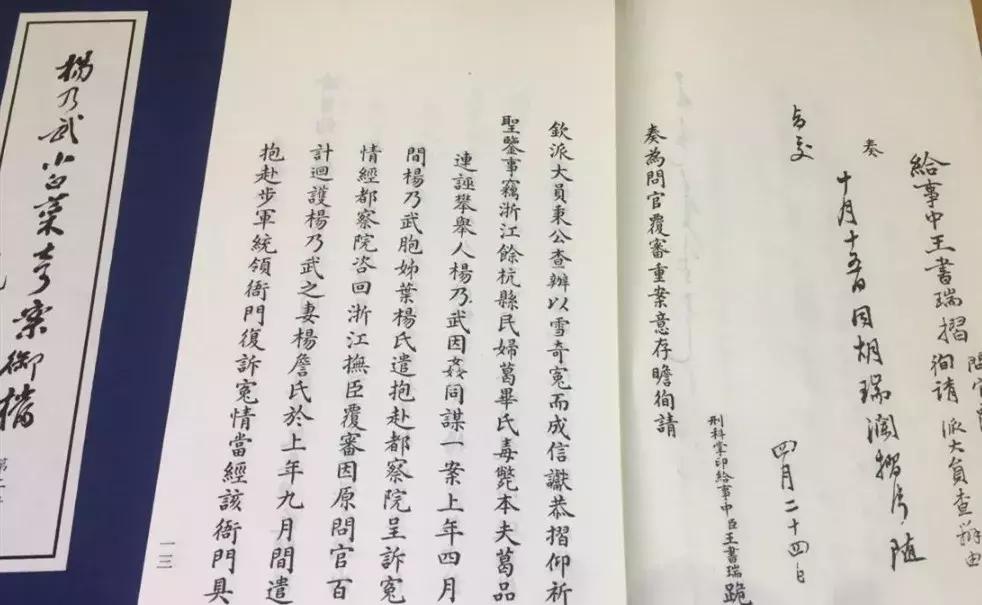 給事中王書瑞摺
問官
徇請 派大員查辦由
奏
十月十五日因胡瑞瀾摺片隨
旨交
四月二十四日
刑科掌印給事中臣王書瑞跪
奏為問官覆審重案意存瞻徇請
欽派大員秉公查辦以雪奇冤而成信讞恭摺仰祈
聖鑒事竊浙江餘杭縣民婦葛畢氏毒斃本夫葛品
連誣攀舉人楊乃武因姦同謀一案上年四月
間楊乃武胞姊葉楊氏遣抱赴都察院呈訴冤
情經都察院咨回浙江撫臣覆審因原問官百
計迴護楊乃武之妻楊詹氏於上年九月間遣
抱赴步軍統領衙門復訴冤情當經該衙門具
一三
楊乃武小白菜奇案御檔
第